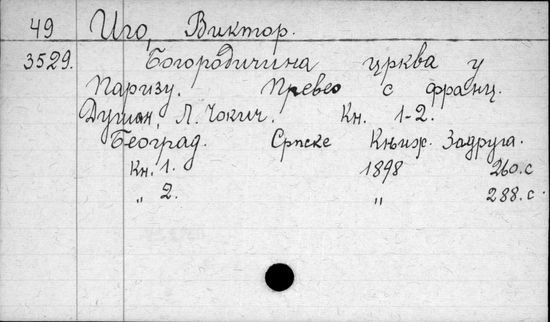 49 Иго, Виктор.
3529. Богородичина црква у
Паризу. Превео с франц.
Душан Л. Чокич. Кн. 1-2.
Београд. Српске Књиж. Задруга.
Кн. 1. 1898 260.с
„ 2. „ 288.с.